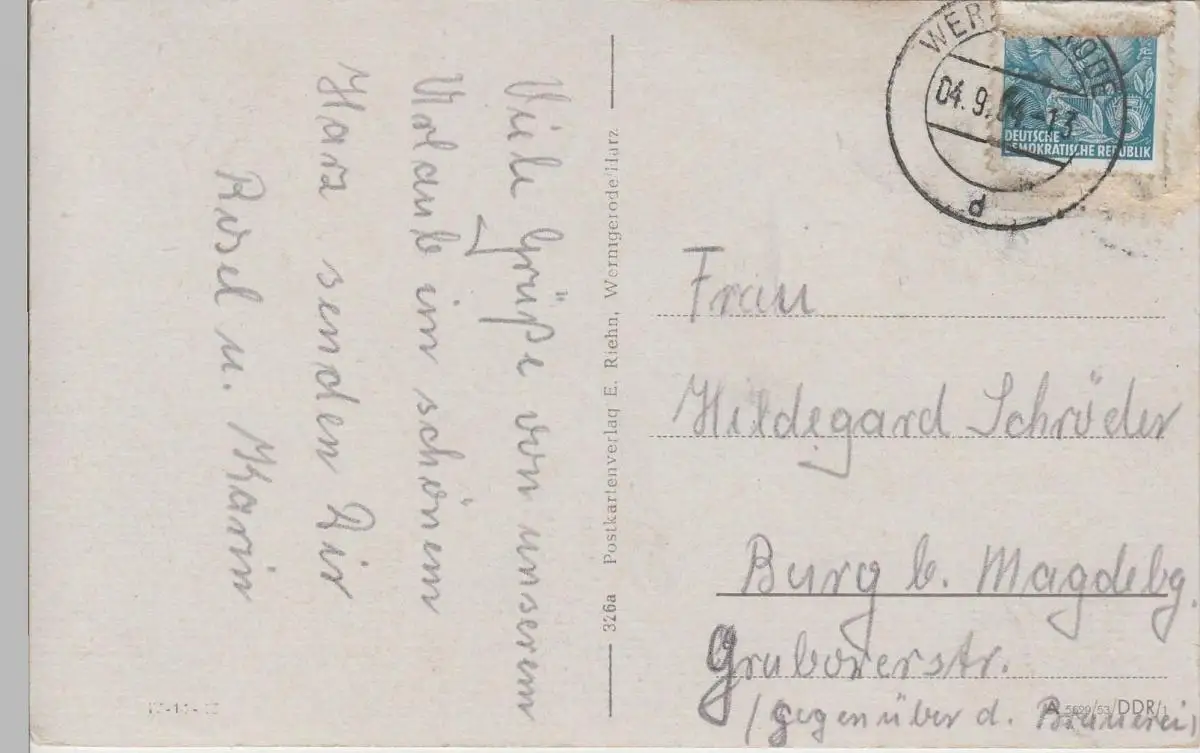 Viele Grüße von unserem
Urlaub im schönem
Harz senden Dir
Rosel u. Karin
326a Postkartenverlag E. Riehn, Wernigerode/Harz
04.9.64-13
d
DEUTSCHE
DEMOKRATISCHE REPUBLIK
Frau
Hildegard Schröder
Burg b. Magdebg.
Grabowerstr.
(gegenüber d. Brauerei)
A 5699/53/DDR/1